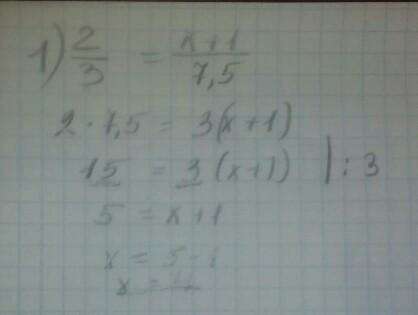 1) 2/3 = x+1/7,5
2 · 7,5 = 3(x+1)
15 = 3(x+1) | : 3
5 = x+1
x = 5-1
x = 4